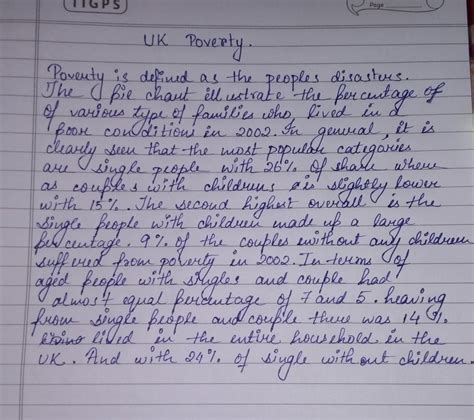 TIGPS
Page
UK Poverty.
Poverty is defined as the peoples disasters.
The pie chart illustrate the percentage of
of various type of families who, lived in a
poor conditions in 2002. In general, it is
clearly seen that the most popular categories
are single people with 26% of share where
as couples with childrens is slightly lower
with 15%. The second highest overall is the
single people with children made up a large
percentage. 9% of the couples without any children
suffered from poverty in 2002. In terms of
aged people with singles and couple had
almost equal percentage of 7 and 5. heaving
from single people and couple there was 14%
lived in the entire household in the
UK. And with 24% of single without children.